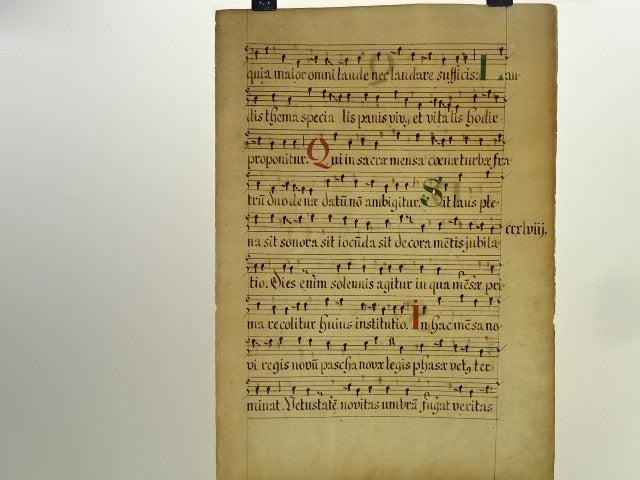 quia maior omni laude nec laudare sufficis: Lau-
dis thema specia lis panis vivꝰ et vitalis hodie
proponitur. Qui in sacræ mensa cœnæ turbæ fra-
trū duodenæ datū nō ambigitur. Sit laus ple-
cxlviij.
na sit sonora sit iocūda sit decora mētis jubila-
tio. Dies enim solemnis agitur in qua mēsæ pri-
ma recolitur huius institutio. In hac mēsa no-
vi regis novū pascha novæ legis phasæ vetꝰ ter-
minat. Vetustatē novitas umbrā fugat veritas